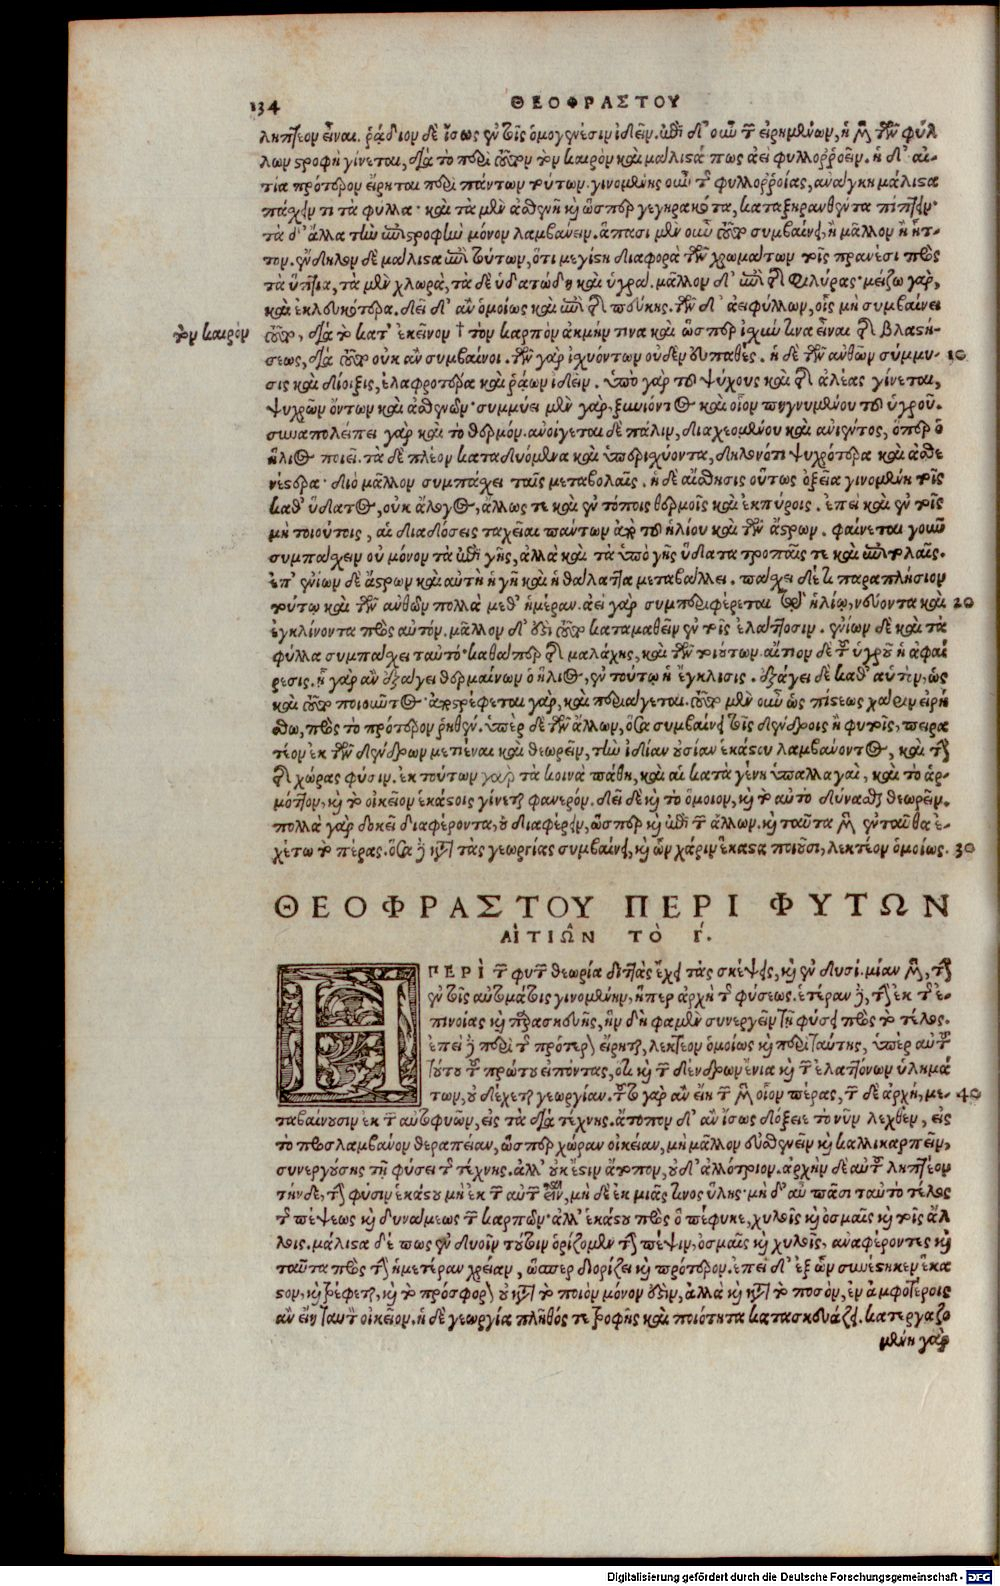 134 ΘΕΟΦΡΑΣΤΟΥ
ληπτέον εἶναι. ῥᾴδιον δὲ ἴσως ἐν τοῖς ὁμογενέσιν ἰδεῖν. ἐπὶ δ' οὖν τῶν εἰρημένων, ἡ μὲν τῶν φύλ
λων στροφὴ γίνεται, διὰ τὸ περὶ τοῦτον τὸν καιρὸν καὶ μάλιστά πως ἀεὶ φυλλοῤῥοεῖν. ἡ δ' αἰ-
τία πρότερον εἴρηται περὶ πάντων τούτων. γινομένης οὖν τῆς φυλλοῤῥοίας, ἀνάγκη μάλιστα
πάσχειν τι τὰ φύλλα· καὶ τὰ μὲν ἀσθενῆ καὶ ὥσπερ γεγηρακότα, καταξηρανθέντα πίπτειν·
τὰ δ' ἄλλα τὴν ἐπιστροφὴν μόνον λαμβάνειν. ἅπασι μὲν οὖν τοῦτο συμβαίνει, ἢ μᾶλλον ἢ ἧτ-
τον. ἔνδηλον δὲ μάλιστα ἐπὶ τούτων, ὅτι μεγίστη διαφορὰ τῶν χρωμάτων τοῖς πρανέσι πρὸς
τὰ ὕπτια, τὰ μὲν χλωρὰ, τὰ δὲ ὑδατώδη καὶ ὑγρά. μᾶλλον δ' ἐπὶ τῆς Φιλύρας· μείζω γὰρ,
καὶ ἐκλευκότερα. δεῖ δ' ἂν ὁμοίως καὶ ἐπὶ τῆς πεύκης. τῶν δ' ἀειφύλλων, οἷς μὴ συμβαίνει
τὸν καιρὸν
τοῦτο, διὰ τὸ κατ' ἐκεῖνον † τὸν καρπὸν ἀκμήν τινα καὶ ὥσπερ ἰσχύν τινα εἶναι τῆς βλαστή-
σεως, διὰ τοῦτο οὐκ ἂν συμβαίνοι. τῶν γὰρ ἰσχυόντων οὐδὲν εὐπαθές. ἡ δὲ τῶν ἀνθῶν σύμμυ- 10
σις καὶ δίοιξις, ἐλαφροτέρα καὶ ῥᾴων ἰδεῖν. ὑπὸ γὰρ τοῦ ψύχους καὶ τῆς ἀλέας γίνεται,
ψυχρῶν ὄντων καὶ ἀσθενῶν· συμμύει μὲν γὰρ, ξυνιόντος καὶ οἷον πηγνυμένου τοῦ ὑγροῦ.
συναπολείπει γὰρ καὶ τὸ θερμόν. ἀνοίγεται δὲ πάλιν, διαχεομένου καὶ ἀνιέντος, ὅπερ ὁ
ἥλιος ποιεῖ. τὰ δὲ πλέον καταδυόμενα καὶ ὑπερισχύοντα, δηλονότι ψυχρότερα καὶ ἀσθε
νέστερα· διὸ μᾶλλον συμπάσχει ταῖς μεταβολαῖς. ἡ δὲ αἴσθησις οὕτως ὀξεῖα γινομένη τοῖς
καθ' ὕδατος, οὐκ ἄλογος, ἄλλως τε καὶ ἐν τόποις θερμοῖς καὶ ἐκπύροις. ἐπεὶ καὶ ἐν τοῖς
μὴ τοιούτοις, αἱ διαδόσεις ταχεῖαι πάντων ἀπὸ τοῦ ἡλίου καὶ τῶν ἄστρων. φαίνεται γοῦν
συμπάσχειν οὐ μόνον τὰ ἐπὶ γῆς, ἀλλὰ καὶ τὰ ὑπὸ γῆς ὕδατα τροπαῖς τε καὶ ἐπιτολαῖς.
ἐπ' ἐνίων δὲ ἄστρων καὶ αὐτὴ ἡ γῆ καὶ ἡ θάλαττα μεταβάλλει. πάσχει δέ τι παραπλήσιον
τούτῳ καὶ τῶν ἀνθῶν πολλὰ μεθ' ἡμέραν. ἀεὶ γὰρ συμπεριφέρεται τῷ ἡλίῳ, νεύοντα καὶ 20
ἐγκλίνοντα πρὸς αὐτόν. μᾶλλον δ' ἔστι τοῦτο καταμαθεῖν ἐν τοῖς ἐλάττοσιν. ἐνίων δὲ καὶ τὰ
φύλλα συμπάσχει ταὐτό· καθάπερ τῆς μαλάχης, καὶ τῶν τοιούτων. αἴτιον δὲ τοῦ ὑγροῦ ἡ ἀφαί
ρεσις. ᾗ γὰρ ἂν ἐξάγει θερμαίνων ὁ ἥλιος, ἐν τούτῳ ἡ ἔγκλισις. ἐξάγει δὲ καθ' αὑτὸν, ὡς
καὶ τοῦτο ποιοῦντος· ἀποστρέφεται γὰρ, καὶ περιάγεται. τοῦτο μὲν οὖν ὡς πίστεως χάριν εἰρή
σθω, πρὸς τὸ πρότερον ῥηθέν. ὑπὲρ δὲ τῶν ἄλλων, ὅσα συμβαίνει τοῖς δένδροις ἢ φυτοῖς, πειρα
τέον ἐκ τῶν δένδρων μετιέναι καὶ θεωρεῖν, τὴν ἰδίαν οὐσίαν ἑκάστου λαμβάνοντος, καὶ τὴν
τῆς χώρας φύσιν. ἐκ τούτων γὰρ τὰ κοινὰ πάθη, καὶ αἱ κατὰ γένη ὑπαλλαγαὶ, καὶ τὸ ἁρ-
μόττον, καὶ τὸ οἰκεῖον ἑκάστοις γίνεται φανερόν. δεῖ δὲ καὶ τὸ ὅμοιον, καὶ τὸ αὐτὸ δύνασθαι θεωρεῖν.
πολλὰ γὰρ δοκεῖ διαφέροντα, οὐ διαφέρειν, ὥσπερ καὶ ἐπὶ τῶν ἄλλων. καὶ ταῦτα μὲν ἐνταῦθα ἐ-
χέτω τὸ πέρας. ὅσα δὲ κατὰ τὰς γεωργίας συμβαίνει, καὶ ὧν χάριν ἕκαστα ποιοῦσι, λεκτέον ὁμοίως. 30
ΘΕΟΦΡΑΣΤΟΥ ΠΕΡΙ ΦΥΤΩΝ
ΑἸΤΙΩ͂Ν ΤῸ Γ́.
Η ΠΕΡῚ τῶν φυτῶν θεωρία διττὰς ἔχει τὰς σκέψεις, καὶ ἐν δυσί. μίαν μὲν, τὴν
ἐν τοῖς αὐτομάτοις γινομένην, ἥπερ ἀρχὴ τῆς φύσεως. ἑτέραν δὲ, τὴν ἐκ τῆς ἐ-
πινοίας καὶ παρασκευῆς, ἣν δή φαμεν συνεργεῖν τῇ φύσει πρὸς τὸ τέλος.
ἐπεὶ δὲ περὶ τῆς προτέρας εἴρηται, λεκτέον ὁμοίως καὶ περὶ ταύτης, ὑπὲρ αὐτοῦ
τούτου τοῦ πρώτου εἰπόντας, ὅτι καὶ τῶν δένδρων ἔνια καὶ τῶν ἐλαττόνων ὑλημά
των, οὐ δέχεται γεωργίαν. τοῦτο γὰρ ἂν εἴη τῶν μὲν οἷον πέρας, τῶν δὲ ἀρχὴ, με- 40
ταβαίνουσιν ἐκ τῶν αὐτοφυῶν, εἰς τὰ διὰ τέχνης. ἄτοπον δ' ἂν ἴσως δόξειε τὸ νῦν λεχθὲν, εἰς
τὸ προσλαμβάνον θεραπείαν, ὥσπερ χώραν οἰκείαν, μὴ μᾶλλον εὐσθενεῖν καὶ καλλικαρπεῖν,
συνεργούσης τῇ φύσει τῆς τέχνης. ἀλλ' οὐκ ἔστιν ἄτοπον, οὐδ' ἀλλότριον. ἀρχὴν δὲ αὐτοῦ ληπτέον
τήνδε, τὴν φύσιν ἑκάστου μὴ ἐκ τῶν αὐτῶν εἶναι, μὴ δὲ ἐκ μιᾶς τινος ὕλης· μὴ δ' αὖ πᾶσι ταὐτὸ τέλος
τῆς πέψεως καὶ δυνάμεως τῶν καρπῶν· ἀλλ' ἑκάστου πρὸς ὃ πέφυκε, χυλοῖς καὶ ὀσμαῖς καὶ τοῖς ἄλ
λοις. μάλιστα δέ πως ἐν δυοῖν τούτοιν ὁρίζομεν τὴν πέψιν, ὀσμαῖς καὶ χυλοῖς, ἀναφέροντες καὶ
ταῦτα πρὸς τὴν ἡμετέραν χρείαν, ὥσπερ διορίζει καὶ πρότερον. ἐπεὶ δ' ἐξ ὧν συνέστηκεν ἕκα
στον, καὶ τρέφεται, καὶ τὸ πρόσφορον οὐ κατὰ τὸ ποιὸν μόνον ἐστὶν, ἀλλὰ καὶ κατὰ τὸ ποσὸν, ἐν ἀμφοτέροις
ἂν εἴη ταῦτα οἰκεῖον. ἡ δὲ γεωργία πλῆθός τε τροφῆς καὶ ποιότητα κατασκευάζει. κατεργαζο
μένη γὰρ
Digitalisierung gefördert durch die Deutsche Forschungsgemeinschaft - DFG